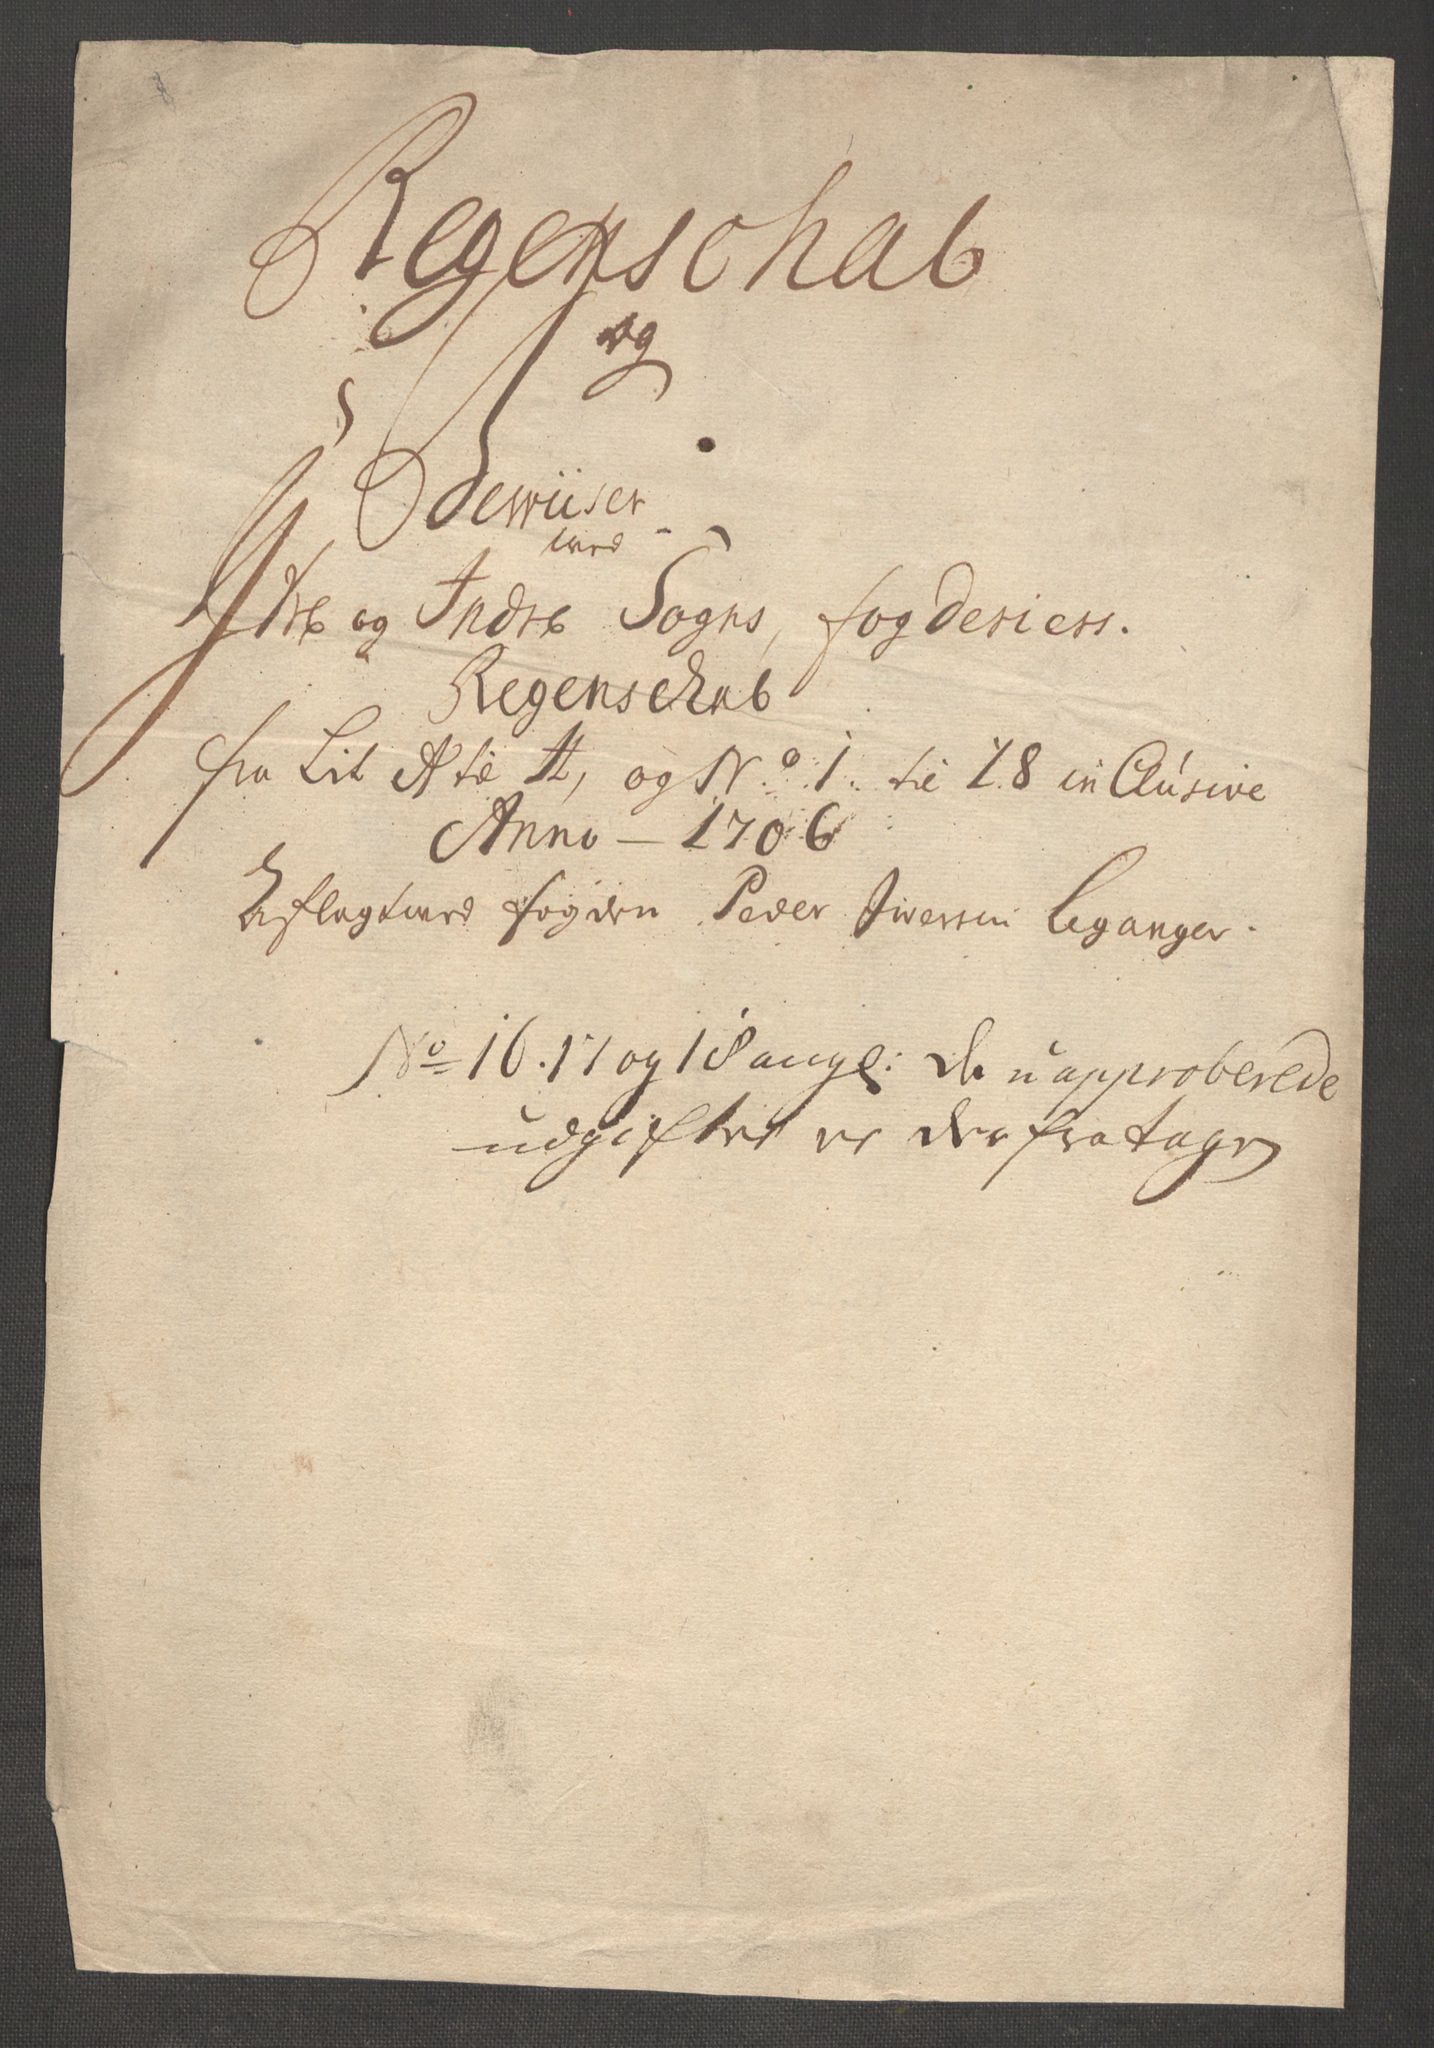 Regenschab
og
Bewiiser
med
Ytre og Indre Sogns, fogderiers.
Regenschab
fra Lit A til H, og No. 1. til 18 inClusive
Anno - 1706
Aflagt med fogden Peder Iwersen Leganger.
No 16. 17 og 18 angl: de uapproberede
udgifter er der fra tagen